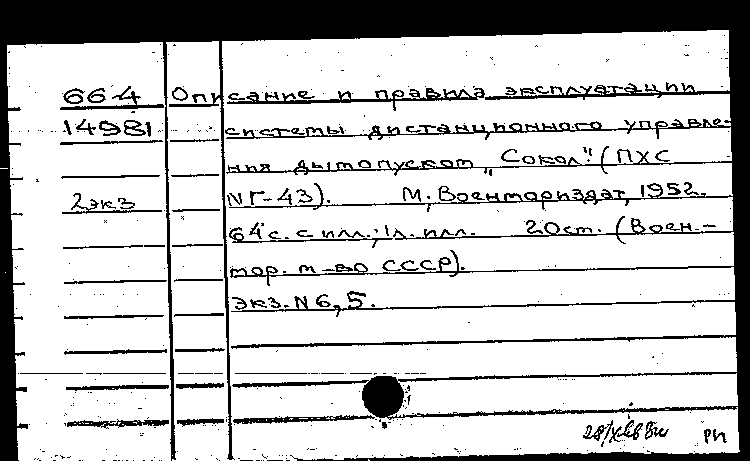 664 Описание и правила эксплуатации
14981 системы дистанционного управле-
ния дымопуском „Сокол" (ПХС
2экз NГ-43). М, Военмориздат, 1952.
64 с. с илл.; 1л. илл. 20см. (Воен.-
мор. м-во СССР).
Экз. N6, 5.
РИ